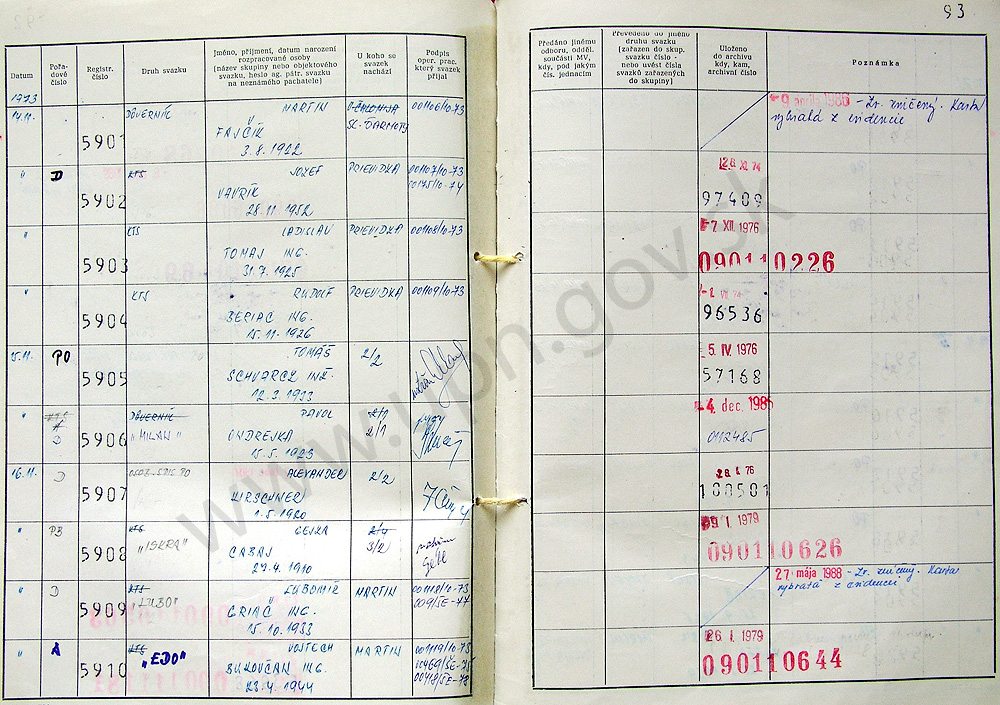 93
Datum
Pořadové číslo
Registr. číslo
Druh svazku
Jméno, příjmení, datum narození
rozpracované osoby
(název skupiny nebo objektového
svazku, heslo ag. pátr. svazku
na neznámého pachatele)
U koho se
svazek
nachází
Podpis
oper. prac.
který svazek
přijal
Předáno jinému
odboru, odděl.
součásti MV,
kdy, pod jakým
čís. jednacím
Převedeno do jiného
druhu svazku
(zařazen do skup.
svazku číslo -
nebo uvést čísla
svazků zařazených
do skupiny)
Uloženo
do archivu
kdy, kam,
archivní číslo
Poznámka
1973
14.11.
5901
DŮVERNÍK
MARTIN
FAJČÍK
3.8.1922
001106/10-73
1986 - Zv. zničený. Karta
vybratá z evidencie
"
D
5902
KTS
JOZEF
VAVRÍK
28.11.1952
PRIEVIDZA
001107/10-73
00175/10-74
26 XI. 74
97409
"
5903
KTS
LADISLAV
TOMAJ ING.
31.7.1925
PRIEVIDZA
001108/10-73
-7 XII. 1976
090110226
"
5904
KTS
RUDOLF
BERIAC ING.
15.11.1926
PRIEVIDZA
001109/10-73
96536
15.11.
PO
5905
TOMÁŠ
SCHVARCZ INŽ.
12.3.1933
2/2
5. IV. 1976
57168
"
D
5906
DŮVERNÍK
"MILAN"
PAVOL
ONDREJKA
15.5.1923
2/1
2/1
-4. dec. 1985
012485
16.11.
D
5907
ALEXANDER
HIRSCHNER
1.5.1920
2/2
28. I. 76
108501
"
PB
5908
KTS
"ISKRA"
GEJZA
CABAJ
27.4.1910
3/2
29. I. 1979
090110626
"
D
5909
KTS
"ĽUBO"
ĽUBOMÍR
GRIAČ ING.
15.10.1933
MARTIN
001118/10-73
009/ŠE-77
27. mája 1988 - Zv. zničený. Karta
vybratá z evidencie
"
A
5910
KTS
"EDO"
VOJTECH
BUKOVČAN ING.
23.4.1944
MARTIN
001119/10-73
00469/ŠE-75
00418/ŠE-78
26 I. 1979
090110644
www.upn.gov.sk